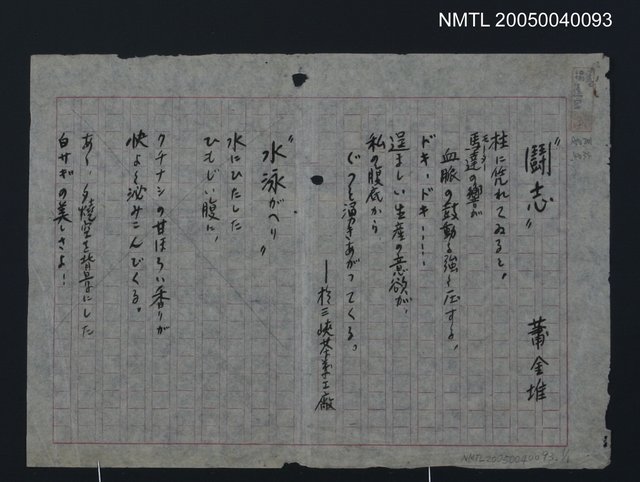 NMTL 20050040093
"闘志"
蕭金堆
柱に凭れてゐると、
馬達の響が
モーター
血脈の鼓動を強く圧する。
ドキードキ……
逞ましい生産の意欲が、
私の腹底から
ぐっと湧きあがってくる。
——於三峡茶業工廠
"水泳がへり"
水にひたした
ひもじい腹に、
クチナシの甘ほろい香りが
快よく泌みこんでくる。
あゝ、夕焼空を背景にした
白サギの美しさよ！
NMTL20050040093